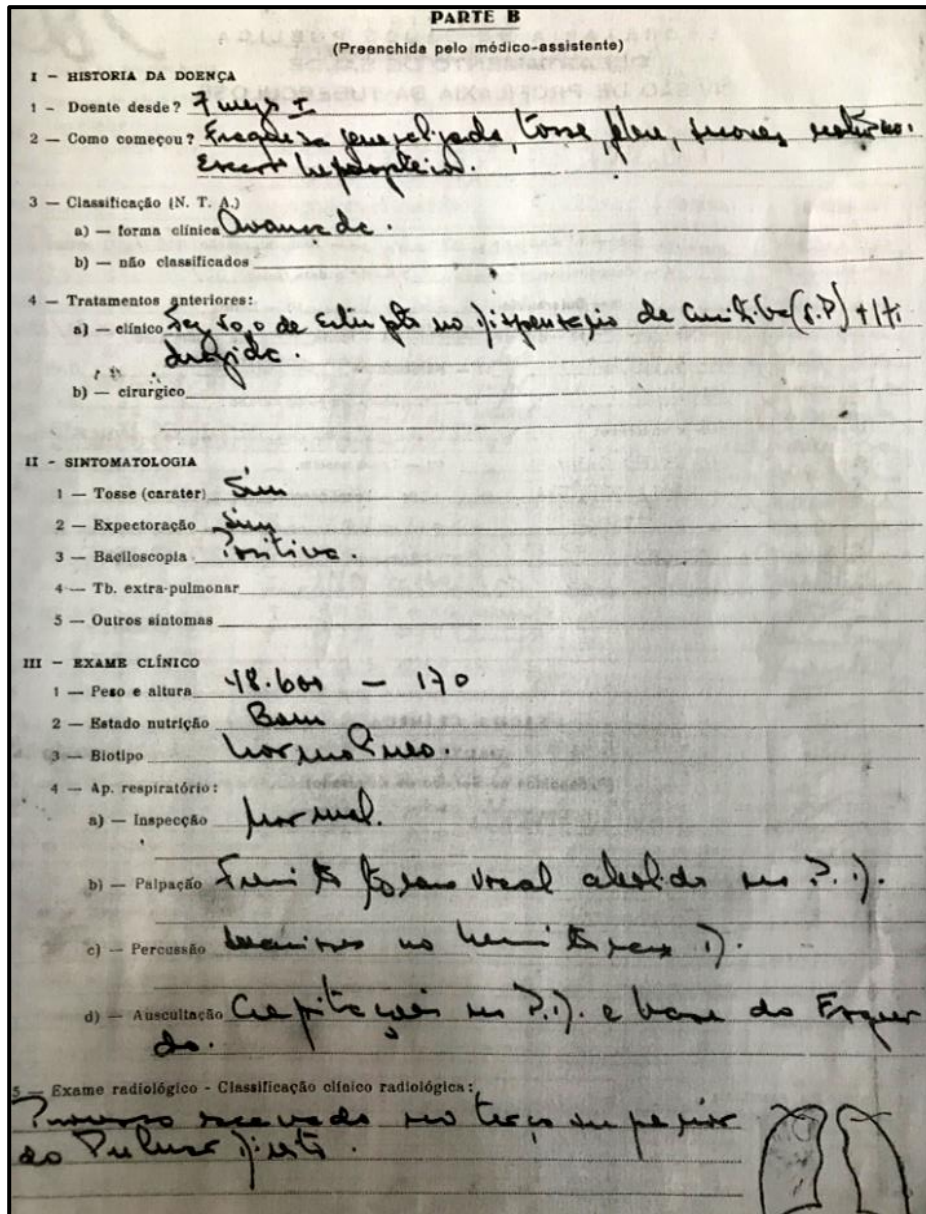 PARTE B
(Preenchida pelo médico-assistente)
I - HISTORIA DA DOENÇA
1 - Doente desde? 7 meses ±
2 — Como começou? Fraqueza generalizada, tosse, febre, suores noturnos.
Escarro
3 — Classificação (N. T. A.)
a) — forma clínica Avançada.
b) — não classificados
4 — Tratamentos anteriores:
a) — clínico Fez 50,0 de no Dispensário de Curitiba (S.P) + Hi
drazida.
b) — cirurgico
II - SINTOMATOLOGIA
1 — Tosse (carater) Sim
2 — Expectoração Sim
3 — Baciloscopia Positiva.
4 — Tb. extra-pulmonar
5 — Outros sintomas
III - EXAME CLÍNICO
1 — Peso e altura 48.600 — 170
2 — Estado nutrição Bom
3 — Biotipo Normolíneo.
4 — Ap. respiratório:
a) — Inspecção Normal.
b) — Palpação Fremito toraco vocal abolido no P. D.
c) — Percussão no hemitorax D.
d) — Auscultação Crepitações no P. D. e base do Esquer
do.
5 — Exame radiológico - Classificação clínico radiológica:
Processo escavado no terço superior
do Pulmão Direito.